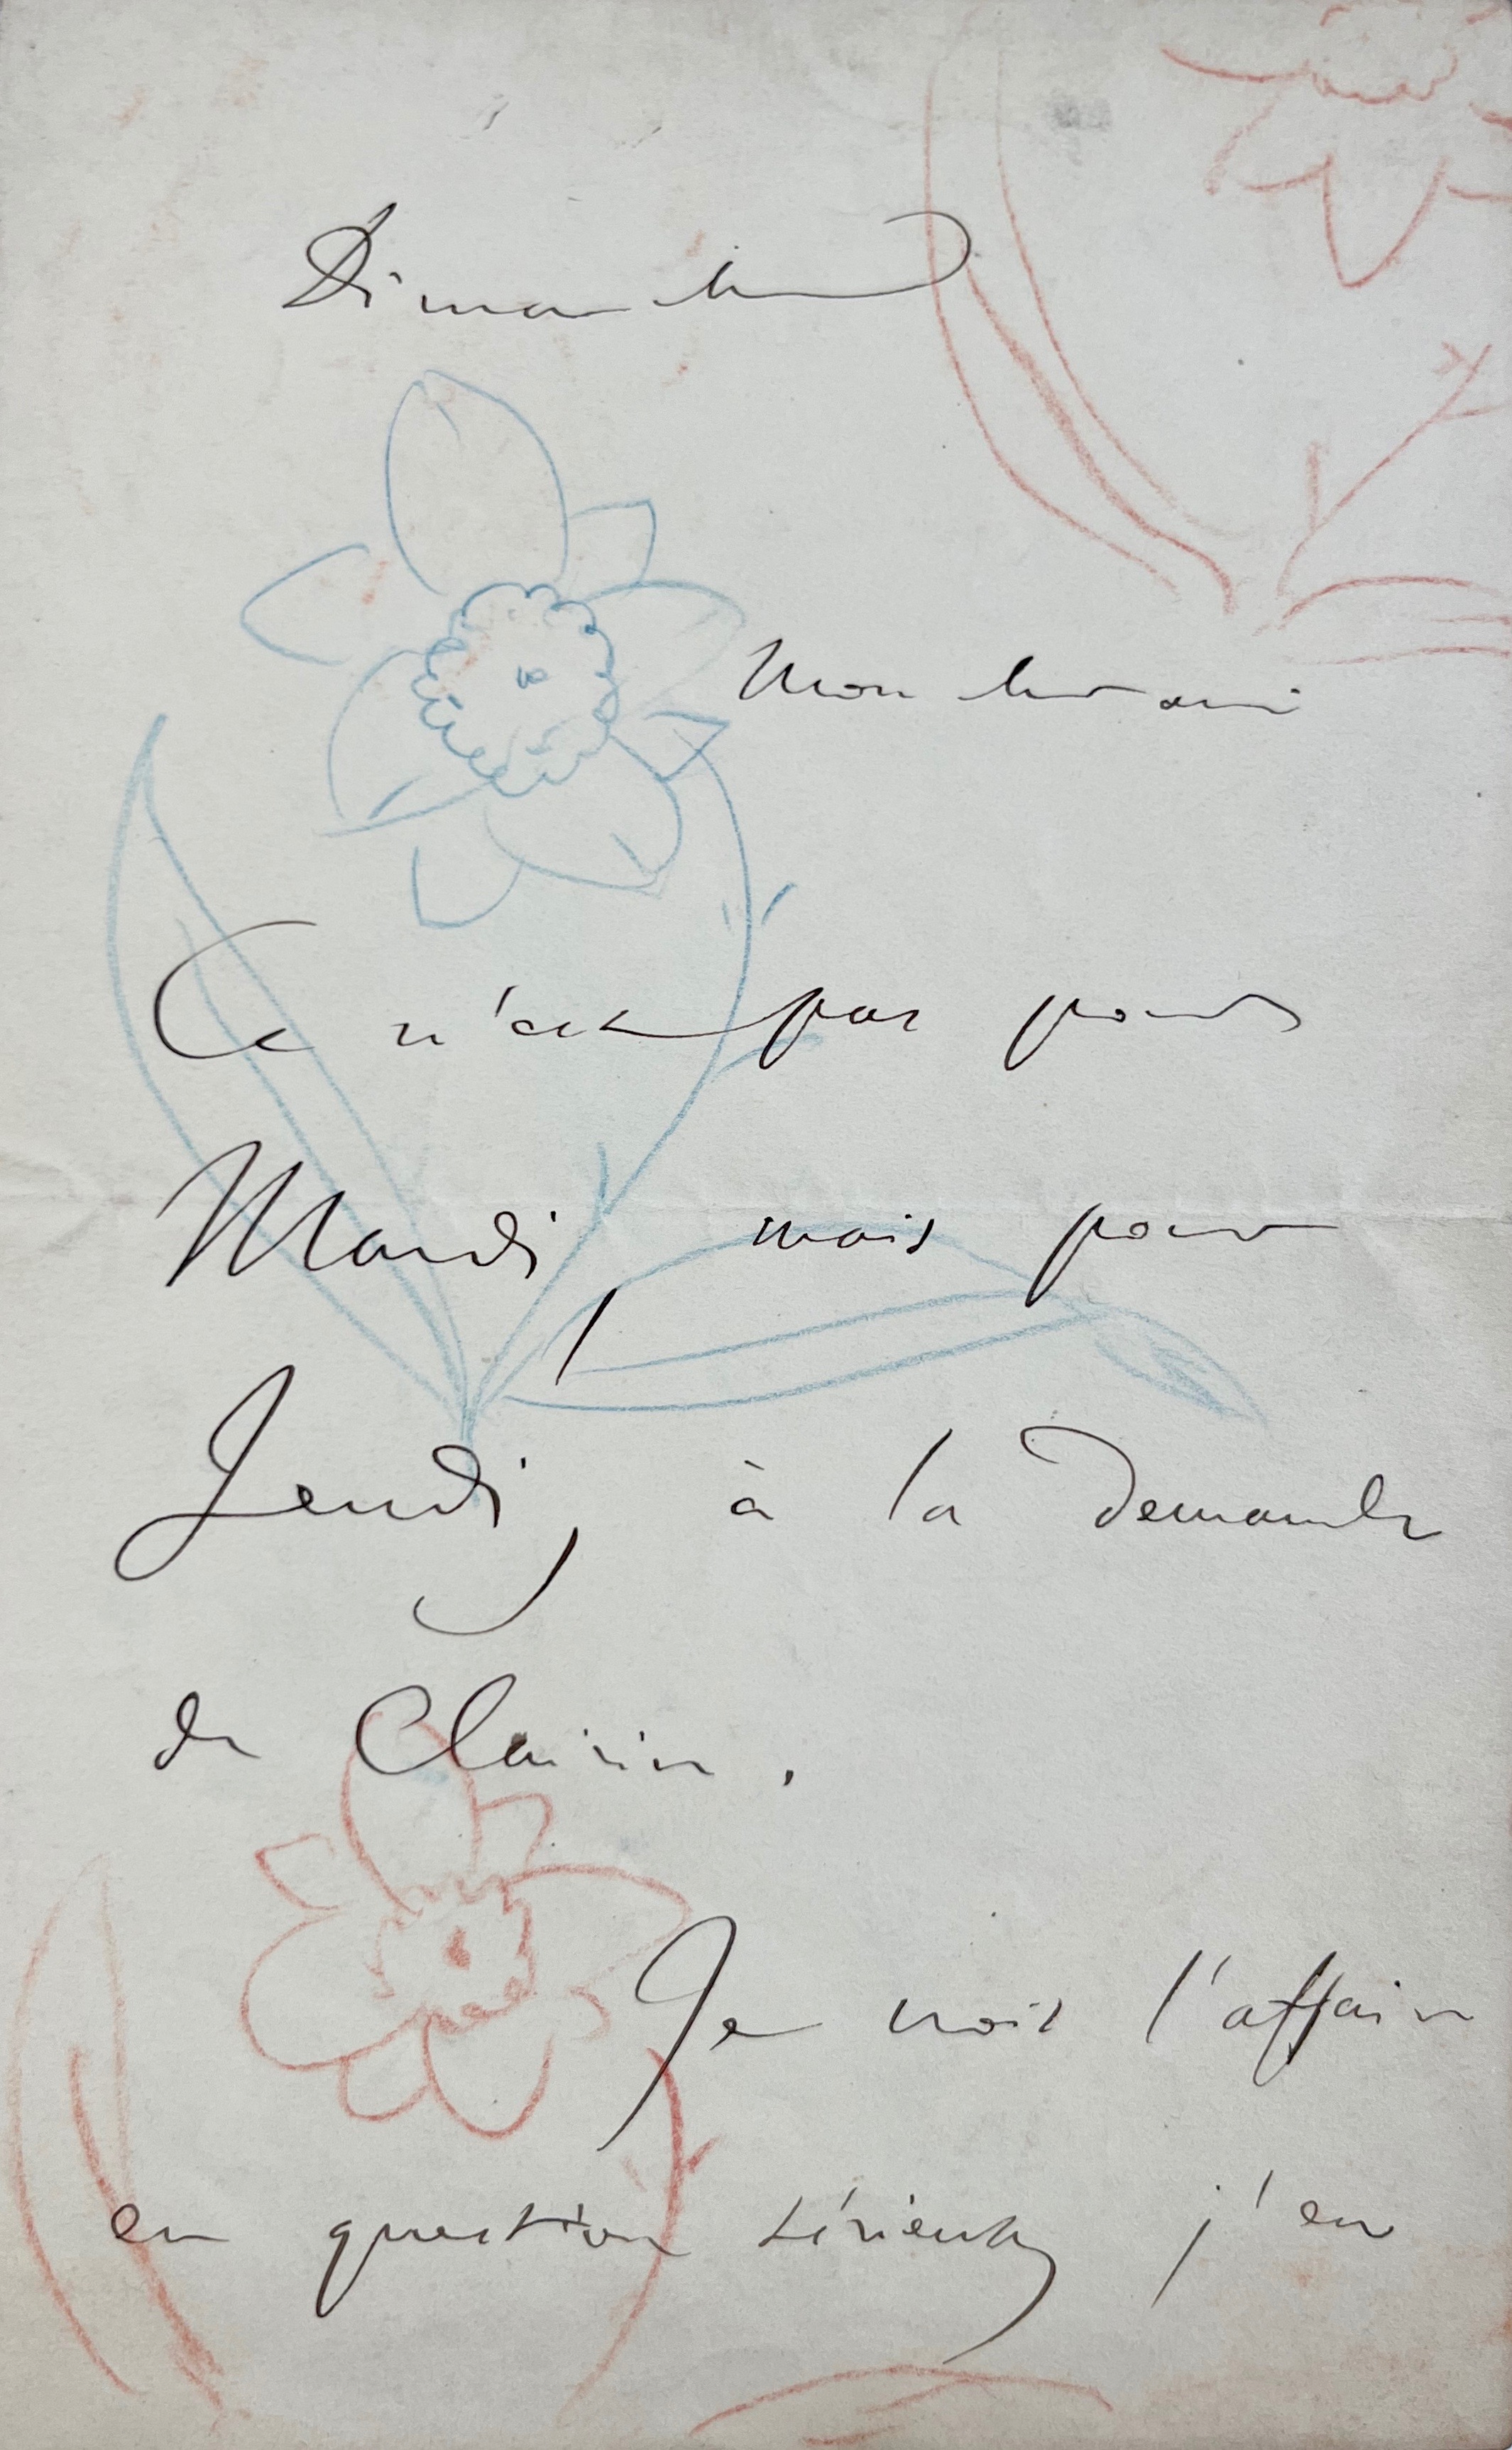 Dimanche
Mon cher ami
Ce n'est pas pour
Mardi, mais pour
Jeudi, à la demande
de Clairin.
Je crois l'affaire
en question sérieuse, j'en